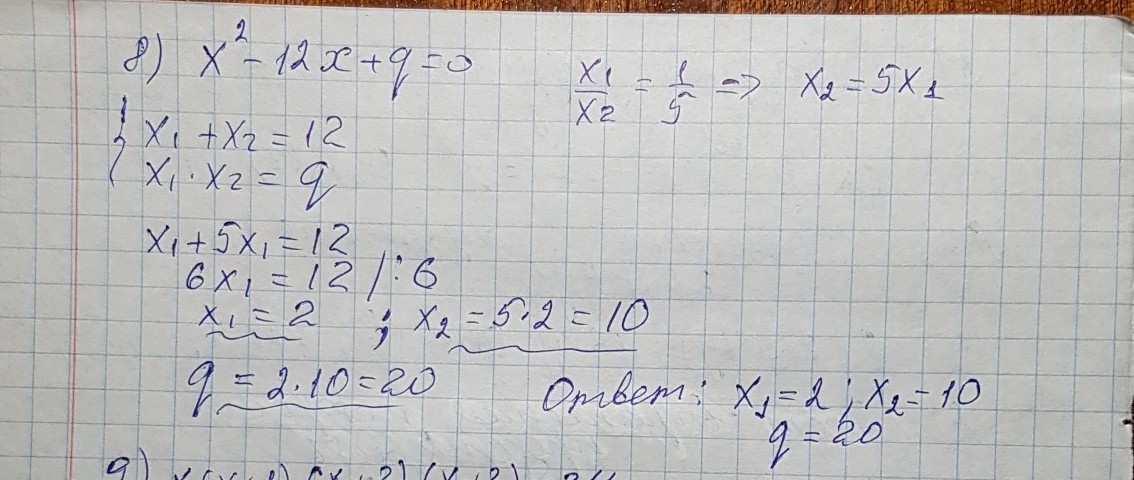 8) x² - 12x + q = 0
x₁/x₂ = 1/5 => x₂ = 5x₁
{ x₁ + x₂ = 12
x₁ · x₂ = q
x₁ + 5x₁ = 12
6x₁ = 12 /:6
x₁ = 2 ; x₂ = 5·2 = 10
q = 2·10 = 20
Ответ: x₁ = 2; x₂ = 10
q = 20
9)